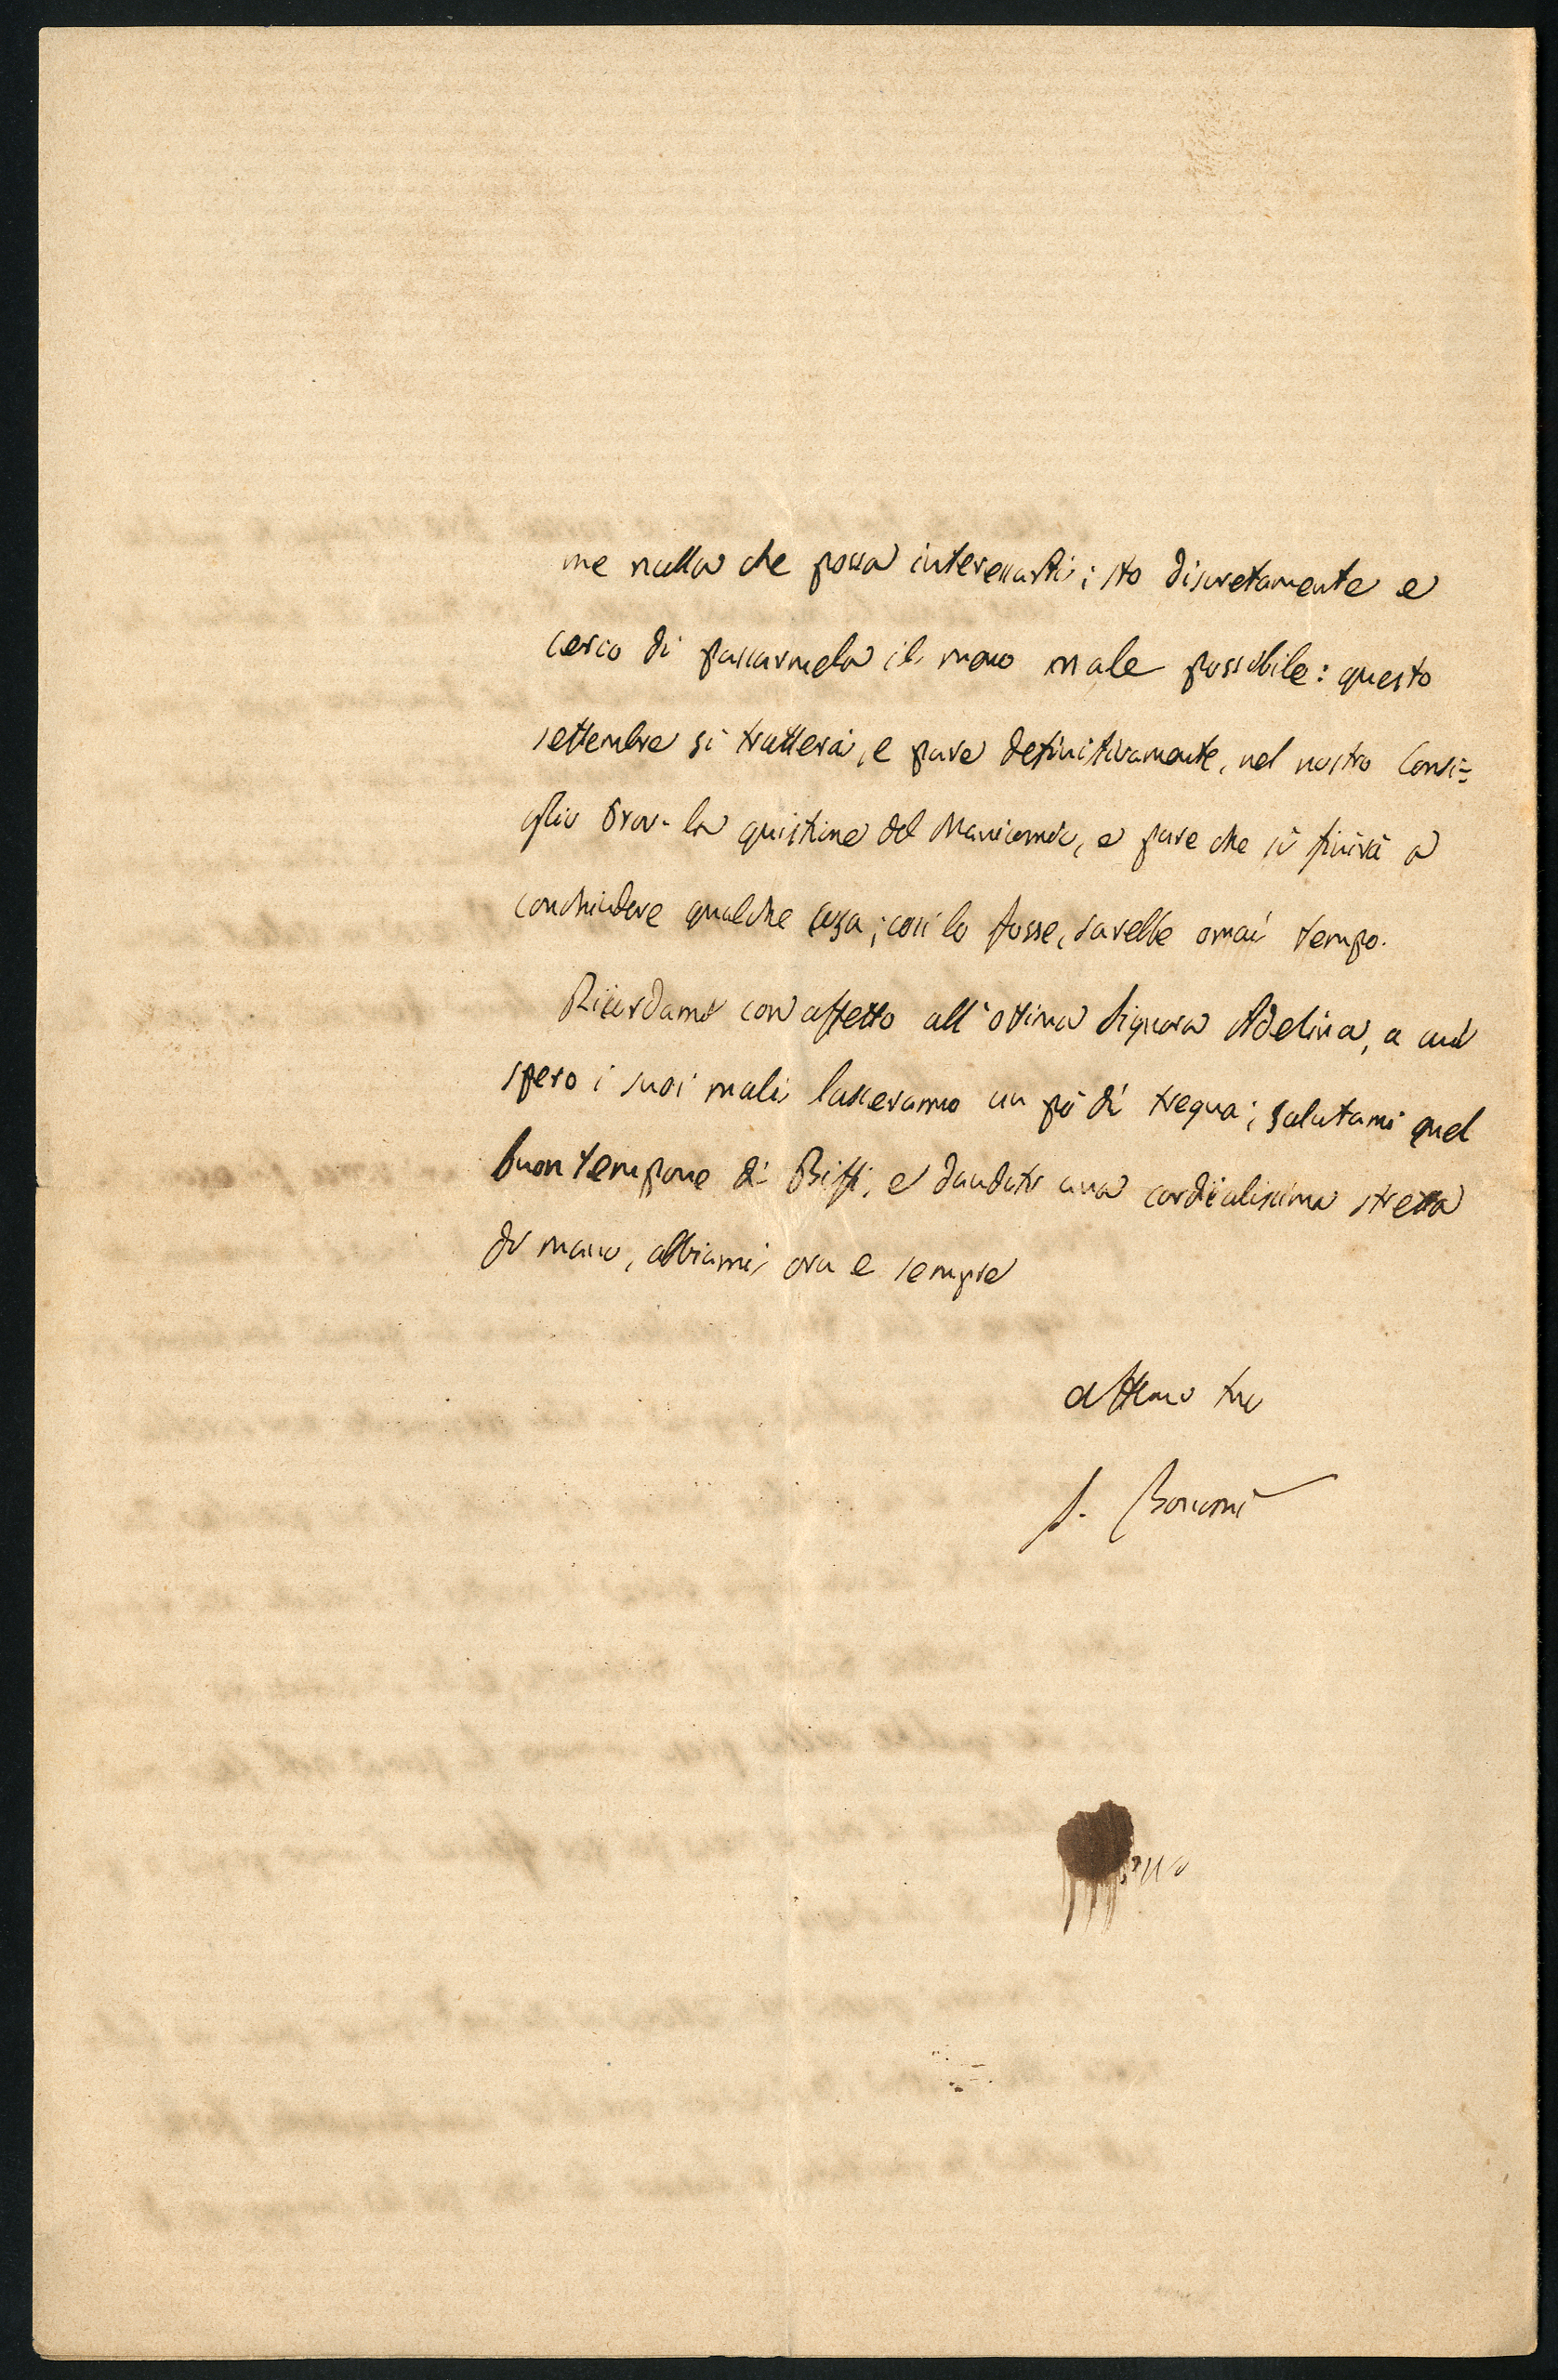 me nulla che possa interessarti; sto discretamente e
cerco di passarmela il meno male possibile: questo
settembre si tratterà, e pare definitivamente, nel nostro Consi=
glio Prov. la quistione del Manicomio, e pare che si finirà a
conchiudere qualche cosa; così lo fosse, sarebbe omai tempo.
Ricordami con affetto all'ottima Signora Adelina, a cui
spero i suoi mali lasceranno un pò di tregua; salutami quel
buontempone di Biffi, e dandoti una cordialissima stretta
di mano, abbiami ora e sempre
affmo tuo
S. Bonomi